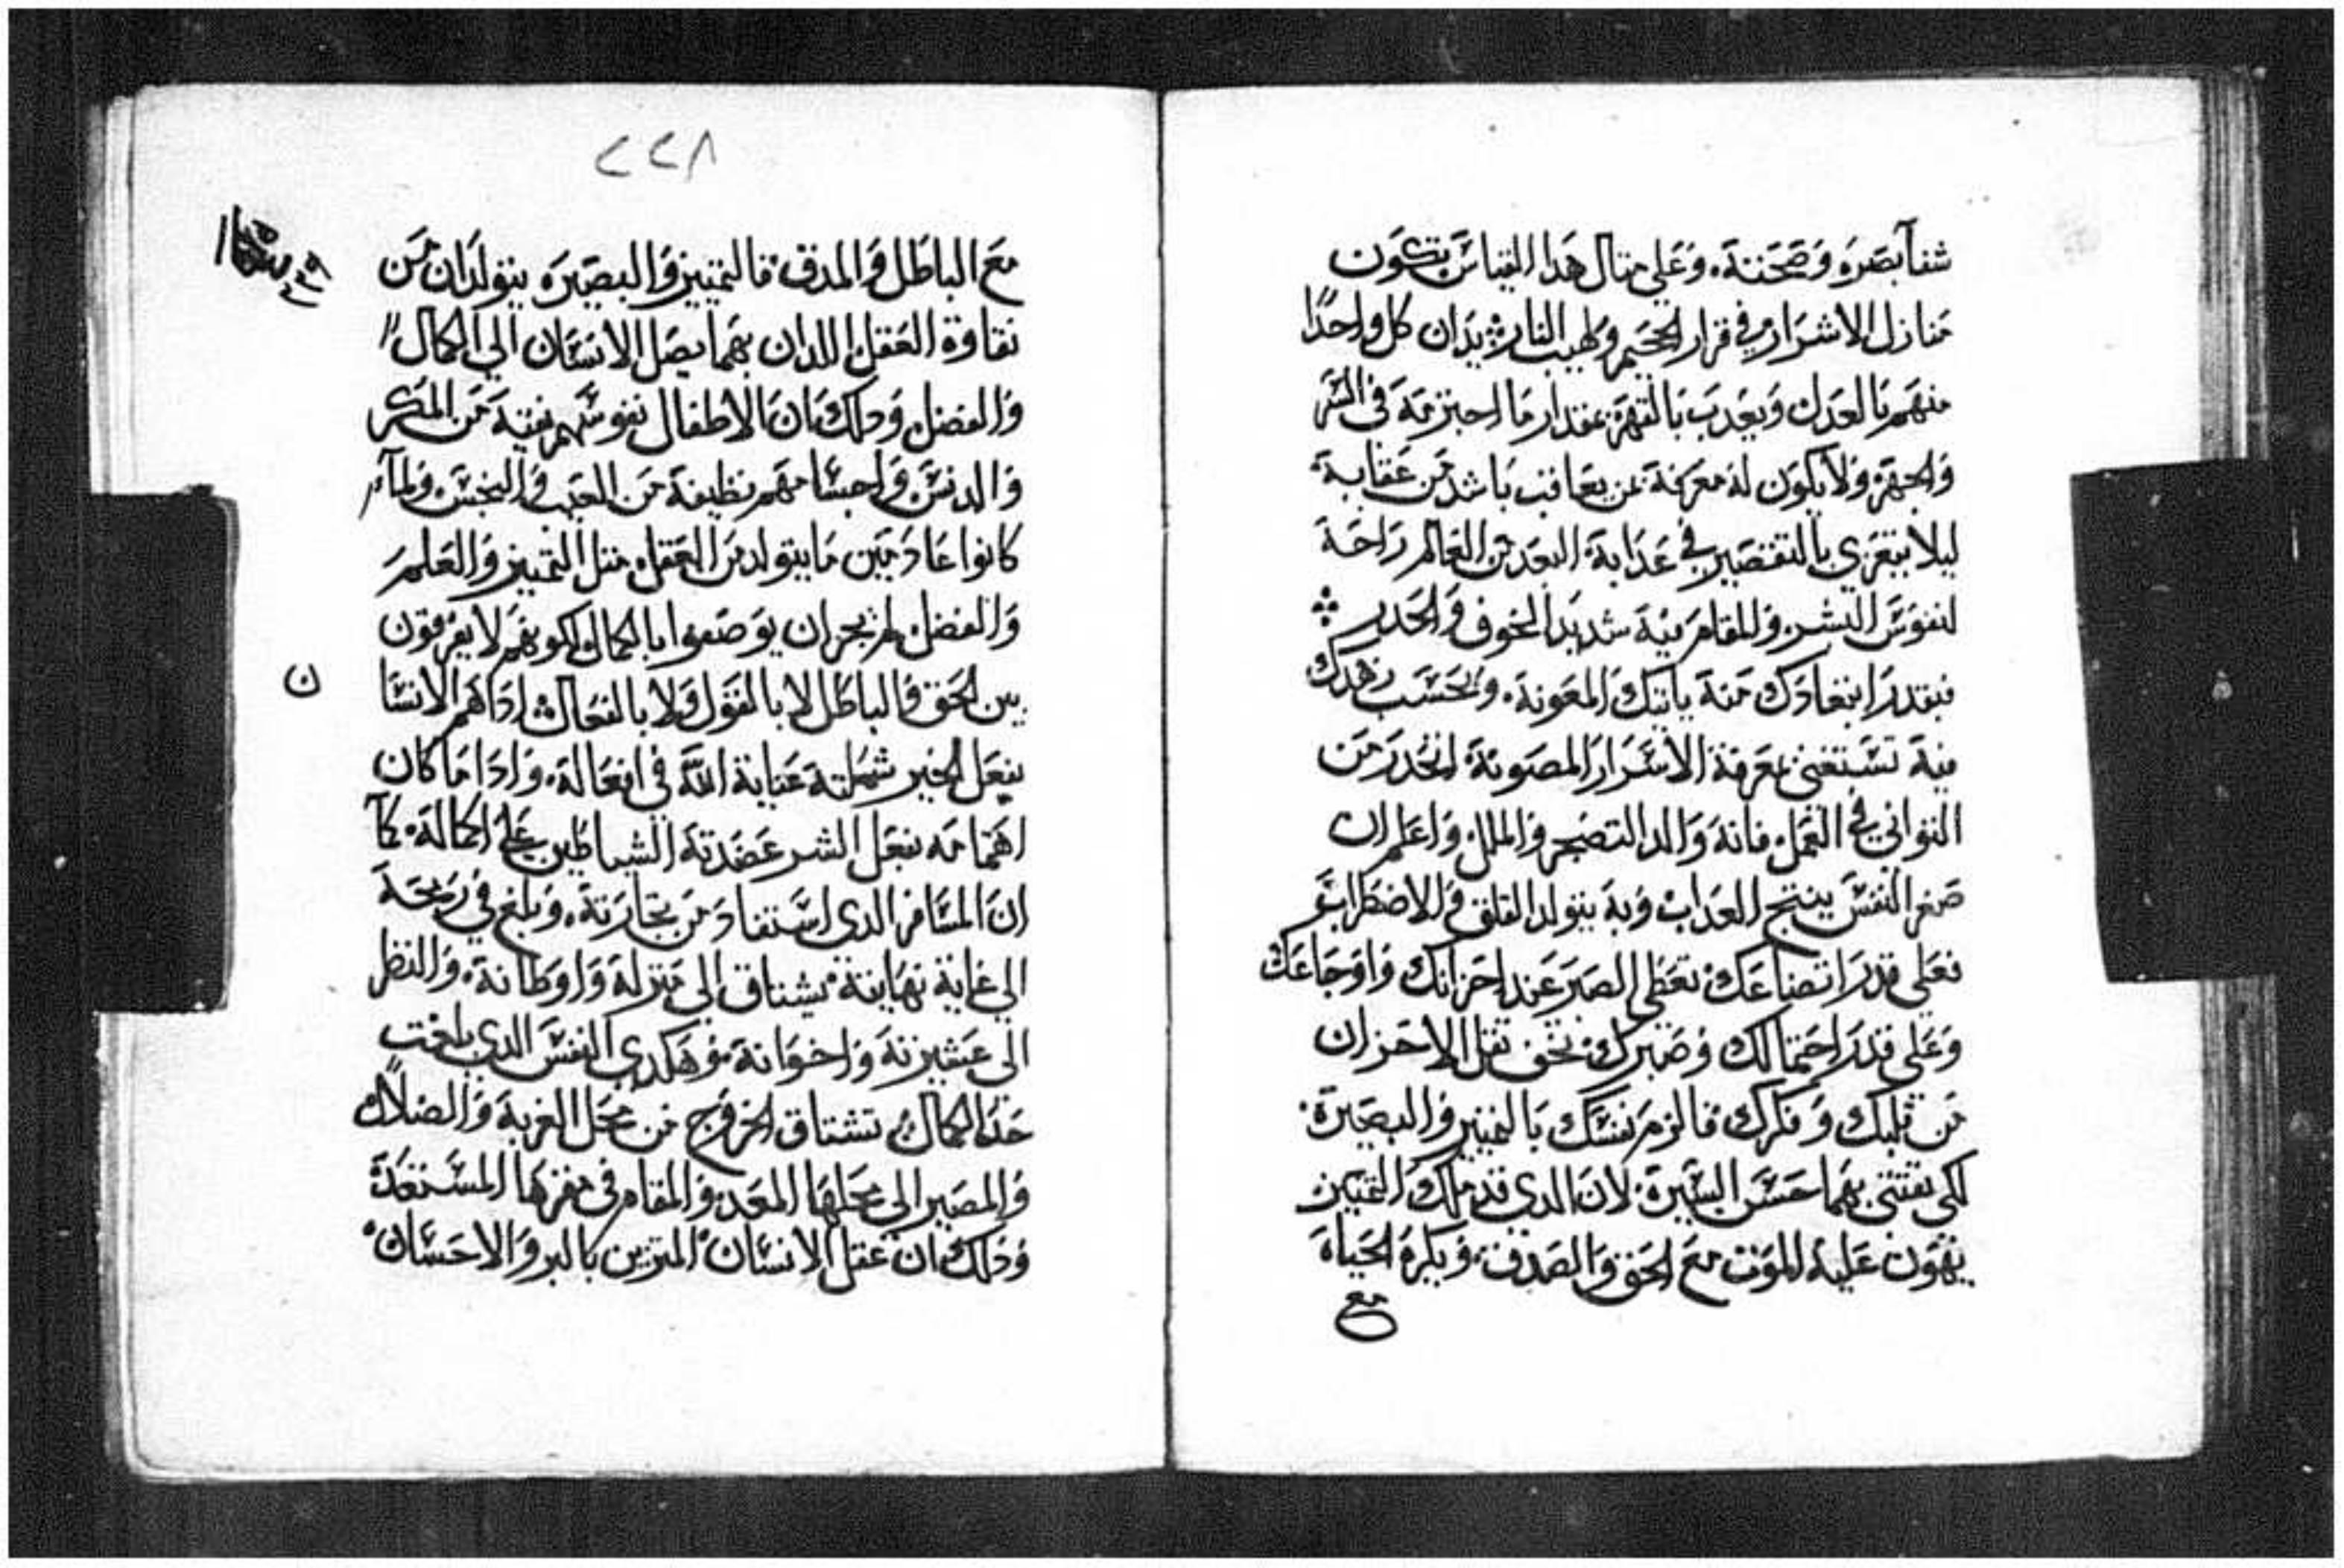 شفآ بصره وصحته. وعلي متال هدا القياس تكون
منازل الاشرار في قرار الجحيم ولهيب النار يدان كل واحدًا
منهم بالعدل ويعدب بالقهر بمقدار ما اجترمه في الشر
والجهر ولا يكون له معرفة بمن يعاقب باشد من عقابه
ليلا يتعزي بالتقصير في عدابه البعد من العالم راحة
لنفوس البشر والمقام فيه شديد الخوف والحدر
فبقدر ابتعادك منه ياتيك المعونة. وبحسب زهدك
فيه تستغني بمعرفة الاسرار المصونة احدر من
التواني في العمل فانه والد التضجر والملل واعلم ان
صغر النفس ينتج العداب وبه يتولد القلق والاضطراب
فعلي قدر اتضاعك تعطي الصبر عند احزانك واوجاعك
وعلي قدر احتمالك وصبرك يخف تقل الاحزان
من قلبك وفكرك فالزم نفسك بالتمييز والبصيرة.
لكي تقتني بهما حسن السيرة لان الدي قد ملك التمييز
يهون عليه الموت مع الحق والصدق ويكره الحياة
مع
٢٢٨
مع الباطل والمدق فالتمييز والبصيرة يتولدان من
نقاوة العقل اللدان بهما يصل الانسان الي الكمال
والفضل ودلك ان الاطفال نفوسهم نقية من المكر
والدنس واجسامهم نظيفة من العيب والنجس ولما
كانوا عادمين ما يتولد من العقل متل التمييز والعلم
والفضل لم يجز ان يوصفوا بالكمال لكونهم لا يفرقون
بين الحق والباطل لا بالقول ولا بالفعال ادا هم الانسا
ن
بفعل الخير شملته عناية الله في افعاله. وادا ما كان
اهتمامه بفعل الشر عضدته الشياطين علي اكماله. كمآ
ان المسافر الدي استفاد من تجارته. وبلغ في ربحه
الي غاية نهايته يشتاق الي منزله واوطانه. والنظر
الي عشيرته واخوانه وهكدي النفس الدي بلغت
حد الكمال تشتاق الخروج من محل الغربة والضلال
والمصير الي محلها المعد والمقام في مقرها المستعد
ودلك ان عقل الانسان المتزين بالبر والاحسان